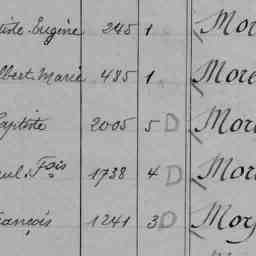 tiste Eugène 245 1 Mor
lbert Marie 485 1 More
Baptiste 2005 5 D Mor
aul Fois 1738 4 D Mor
rançois 1241 3 D Mor